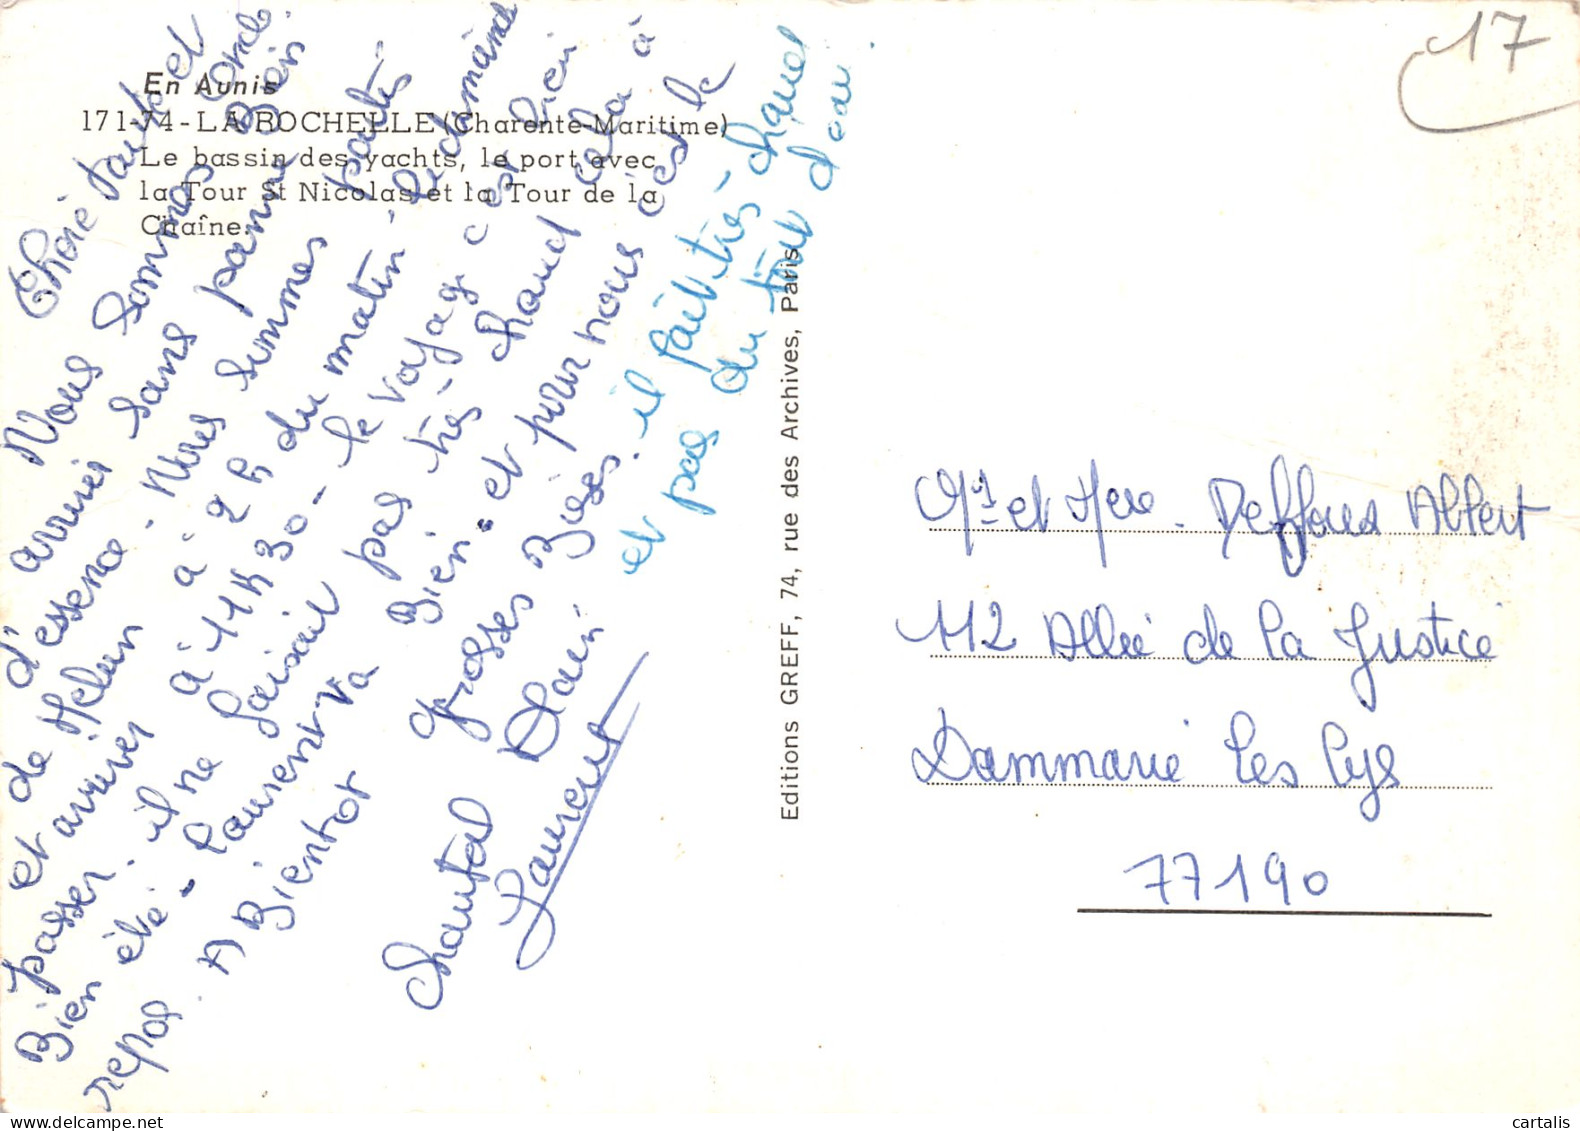 En Aunis
171-74 - LA ROCHELLE (Charente-Maritime)
Le bassin des yachts, le port avec
la Tour St Nicolas et la Tour de la
Chaîne.
Chère Tante et Oncle.
Nous sommes Bien
d'arriver sans panne
d'essence. Nous sommes partis
de Melun à 2h du matin. le dimanche
et arriver à 11h30 - le voyage c'est bien
passer. il ne faisait pas très chaud cela à
Bien été - Laurent va Bien. et pour nous c'est le
repos. A Bientot
grosses Bises. il fait très chaud
et pas du tout d'eau.
Chantal Alain
Laurent
Editions GREFF, 74, rue des Archives, Paris
17
Mr et Mme. Deffoux Albert
112 Allée de la Justice
Dammarie Les Lys
77190
cartalis